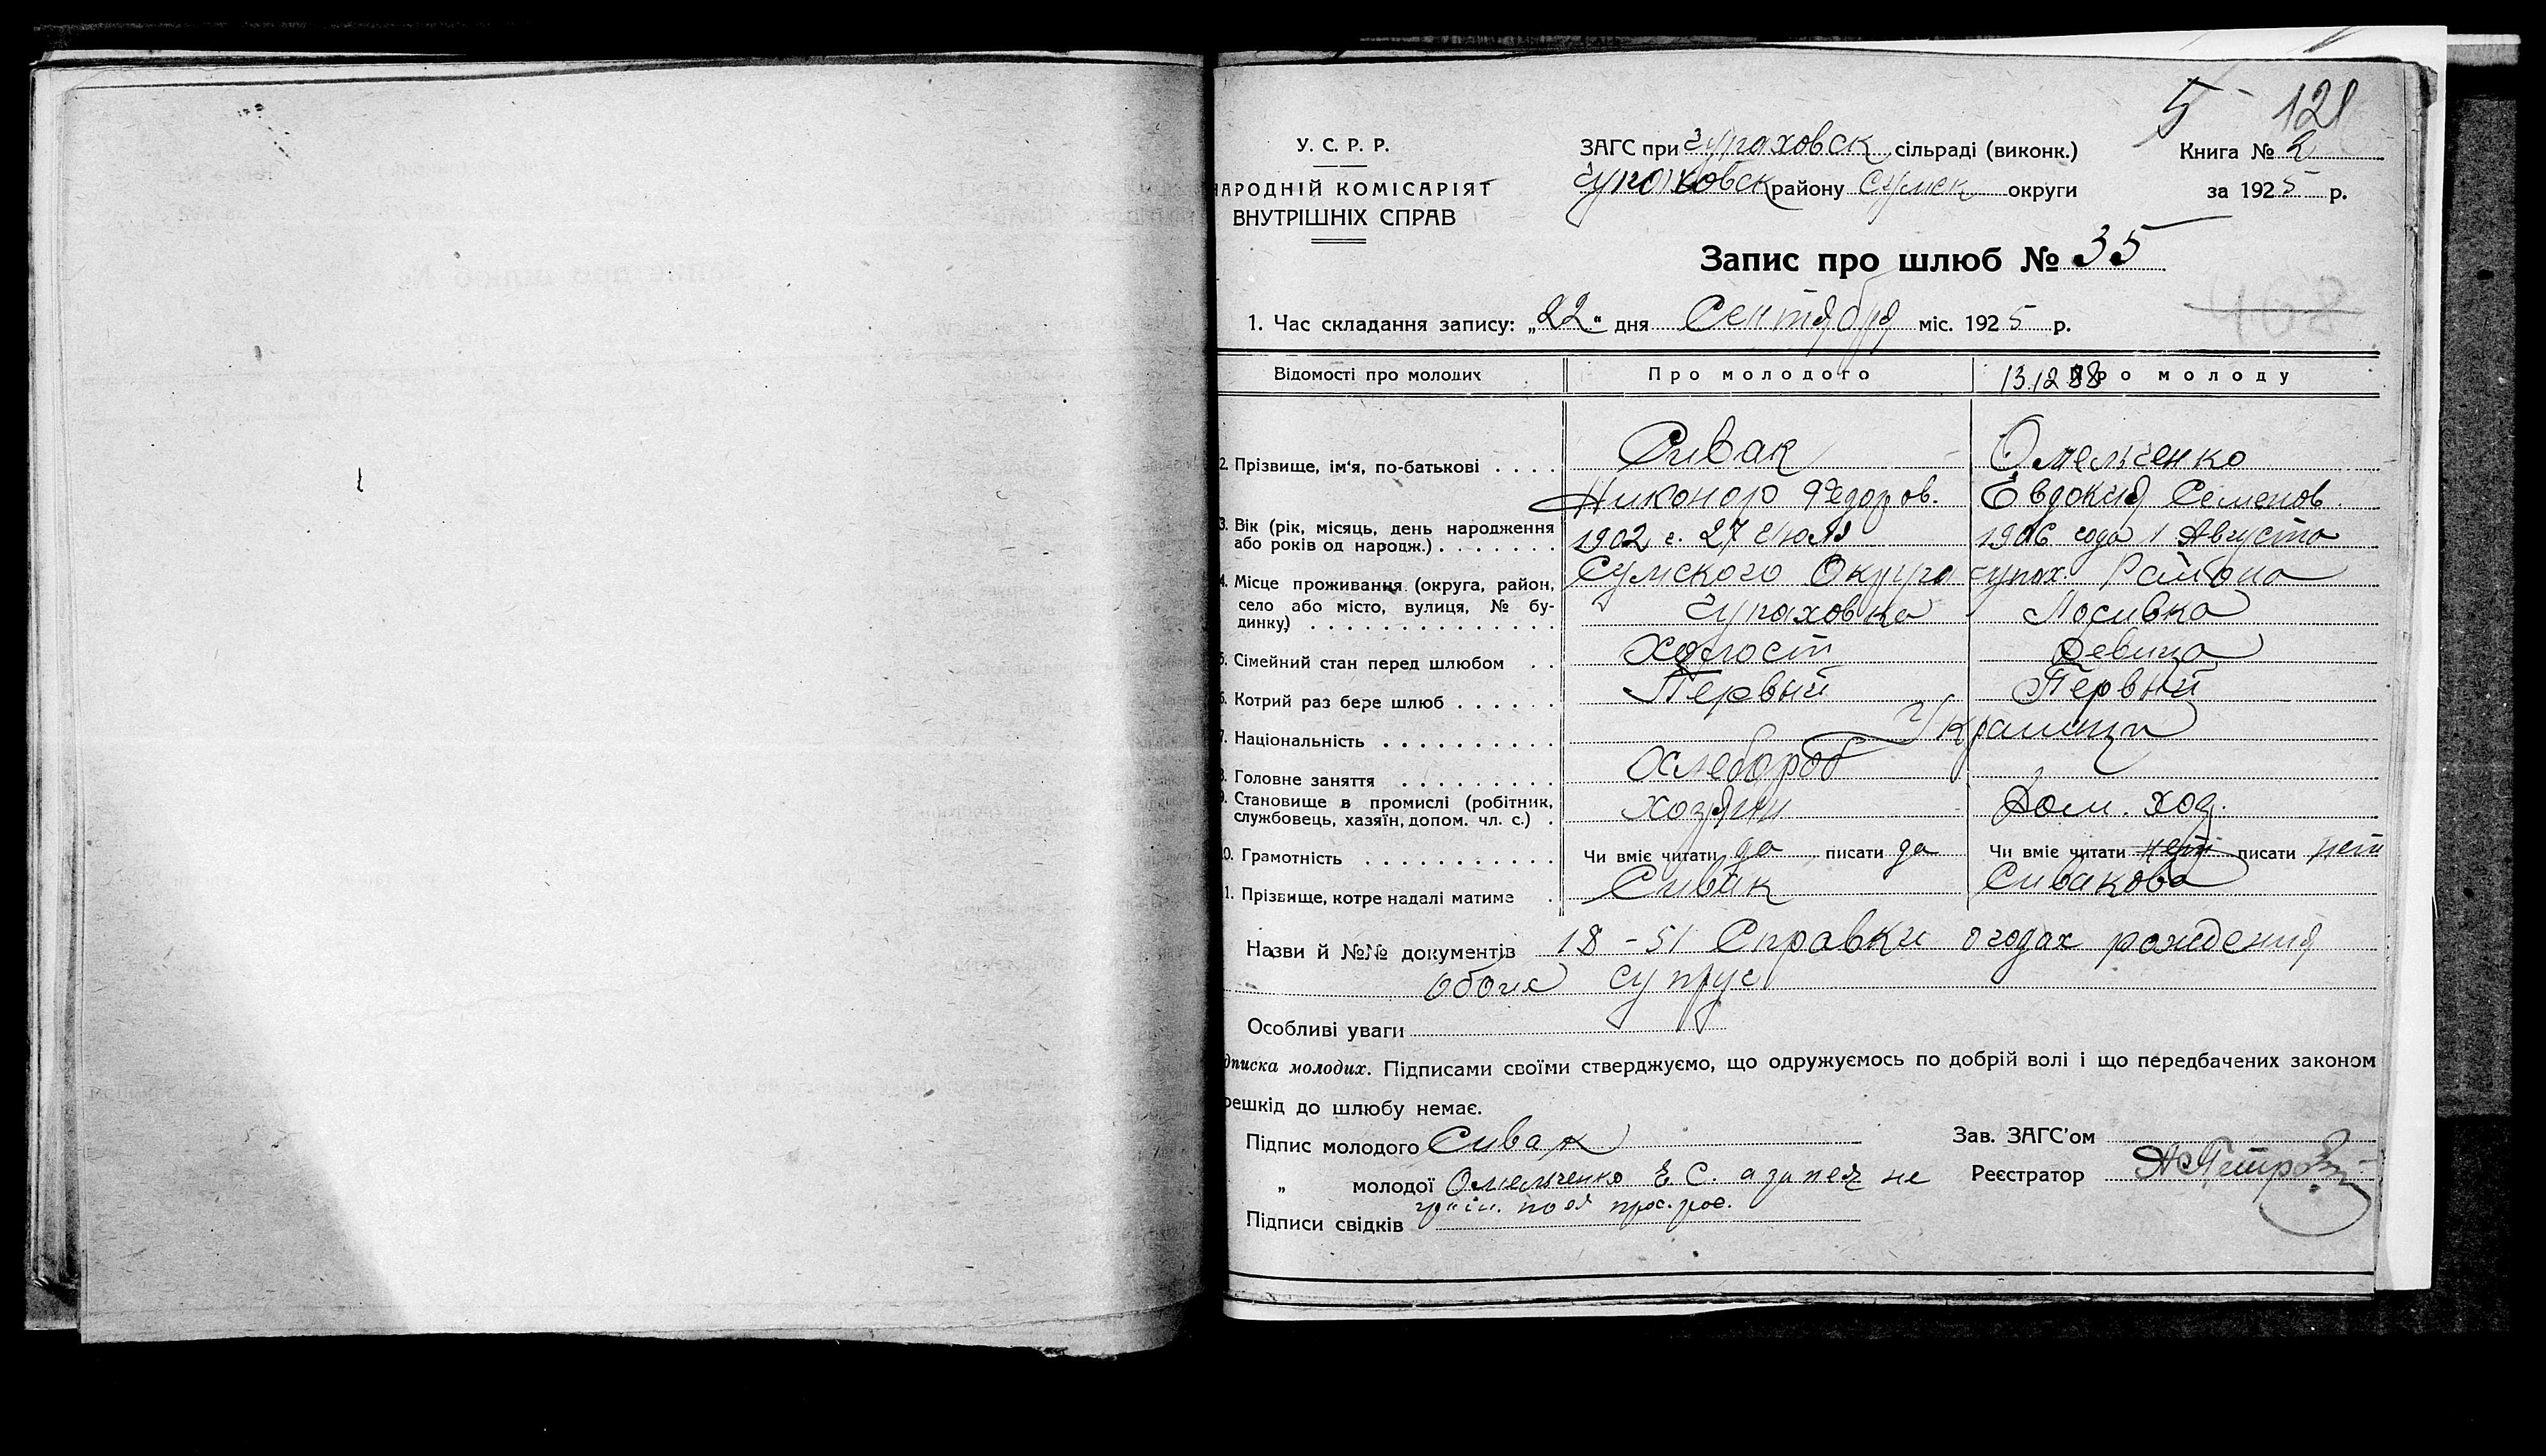 5 121
У. С. Р. Р.
НАРОДНІЙ КОМІСАРІЯТ
ВНУТРІШНІХ СПРАВ
ЗАГС при Чупаховск сільраді (виконк.)
Чупаховск району Сумск округи
Книга № 2
за 1925 р.
Запис про шлюб № 35
804
1. Час складання запису: „22" дня Сентября міс. 1925 р.
Відомості про молодих Про молодого Про молоду
13.12.88
2. Прізвище, ім'я, по-батькові . . . . Сивак Омельченко
Никонор Федоров. Евдокия Семенов.
3. Вік (рік, місяць, день народження
або років од народж.) . . . . . . . 1902 г. 27 Июля 1906 года 1 Августа
4. Місце проживання (округа, район, Сумского Округа Чупах. Района
село або місто, вулиця, № бу-
динку) . . . . . . . . . . . . . . Чупаховка Лосивка
5. Сімейний стан перед шлюбом . . Холост Девица
6. Котрий раз бере шлюб . . . . . . Первый Первый
7. Національність . . . . . . . . . . Украинци
8. Головне заняття . . . . . . . . . Хлебороб
9. Становище в промислі (робітник,
службовець, хазяїн, допом. чл. с.) . хозяин Дом. хоз.
10. Грамотність . . . . . . . . . . . Чи вміє читати да писати да Чи вміє читати нет писати нет
11. Прізвище, котре надалі матиме . Сивак Сивакова
Назви й №№ документів 18 - 51 Справки о годах рождения
обоих супруг
Особливі уваги
дписка молодих. Підписами своїми стверджуємо, що одружуємось по добрій волі і що передбачених законом
решкід до шлюбу немає.
Підпис молодого Сивак
Зав. ЗАГС'ом
„ молодої Омельченко Е. С. а за неё не
Реєстратор АПетров
Підписи свідків